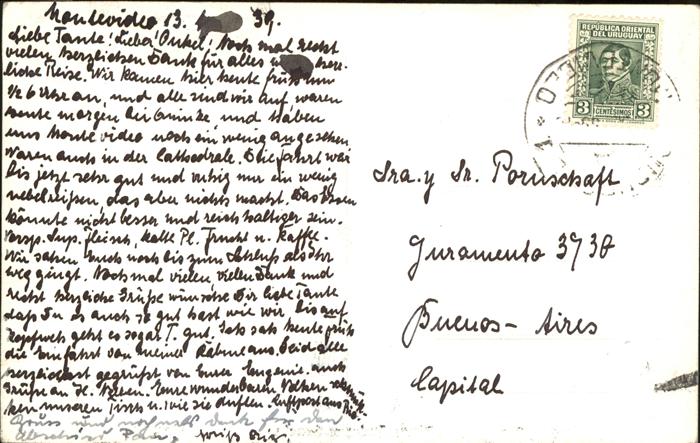 Montevideo 13. 39.
Liebe Tante! Lieber Onkel! Noch mal recht
vielen herzlichen Dank für alles
liche Reise. Wir kamen hier heute früh um
½ 6 Uhr an, und alle sind wir auf, waren
heute morgen bei und haben
uns Montevideo noch ein wenig angesehen.
Waren auch in der Cathedrale. Die Fahrt war
bis jetzt sehr gut und ruhig nur ein wenig
neblig, das aber nichts macht. Das Essen
könnte nicht besser und reichhaltiger sein.
Vorsp. Sup. Fleisch, kalte Pl. Frucht u. Kaffe.
Wir sahen Euch noch bis zum Schluss als Ihr
weg gingt. Noch mal vielen, vielen Dank und
recht herzliche Grüße wünsche Dir liebe Tante
daß Du es auch so gut hast wie wir, bis auf
Kopfweh geht es sogar T. gut. Ich sah heute früh
die Einfahrt von meiner Kabine aus. Seid alle
herzlichst gegrüßt von Eurer Eugenie. auch
Grüße an H. Eure wunderbaren Nelken
unseren Tisch u. wie sie duften. Luftpost aus
Gruss und nochmals dank für den
Abschied
REPÚBLICA ORIENTAL
DEL URUGUAY
3 CENTÉSIMOS 3
Sra. y Sr. Pornschaft
Juramento 3738
Buenos-Aires
Capital